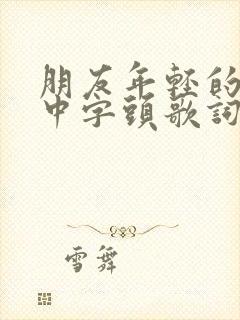 朋友年輕的
中字頭歌詞
雪舞